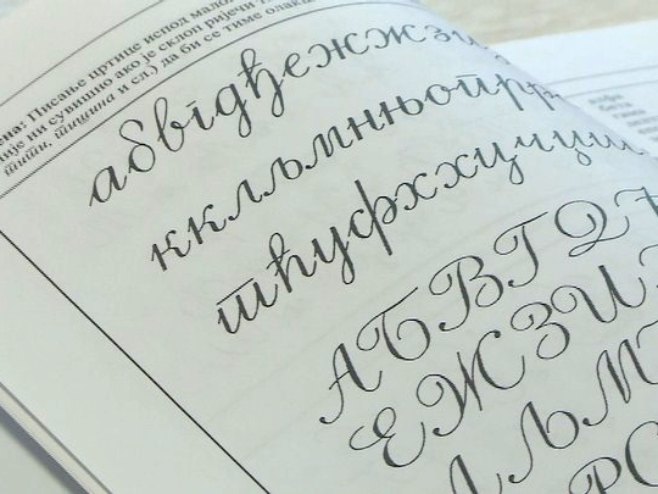 Писање цртице испод мало
није ни сувишно ако је склоп ријечи
тити, тишина и сл.) да би се тиме олакш
абвгдђежжзи
кклљмнњопрр
тћуфххцчџш
АБВГДЂ
ЕЖЗИЈ
ЛЉМ
РС